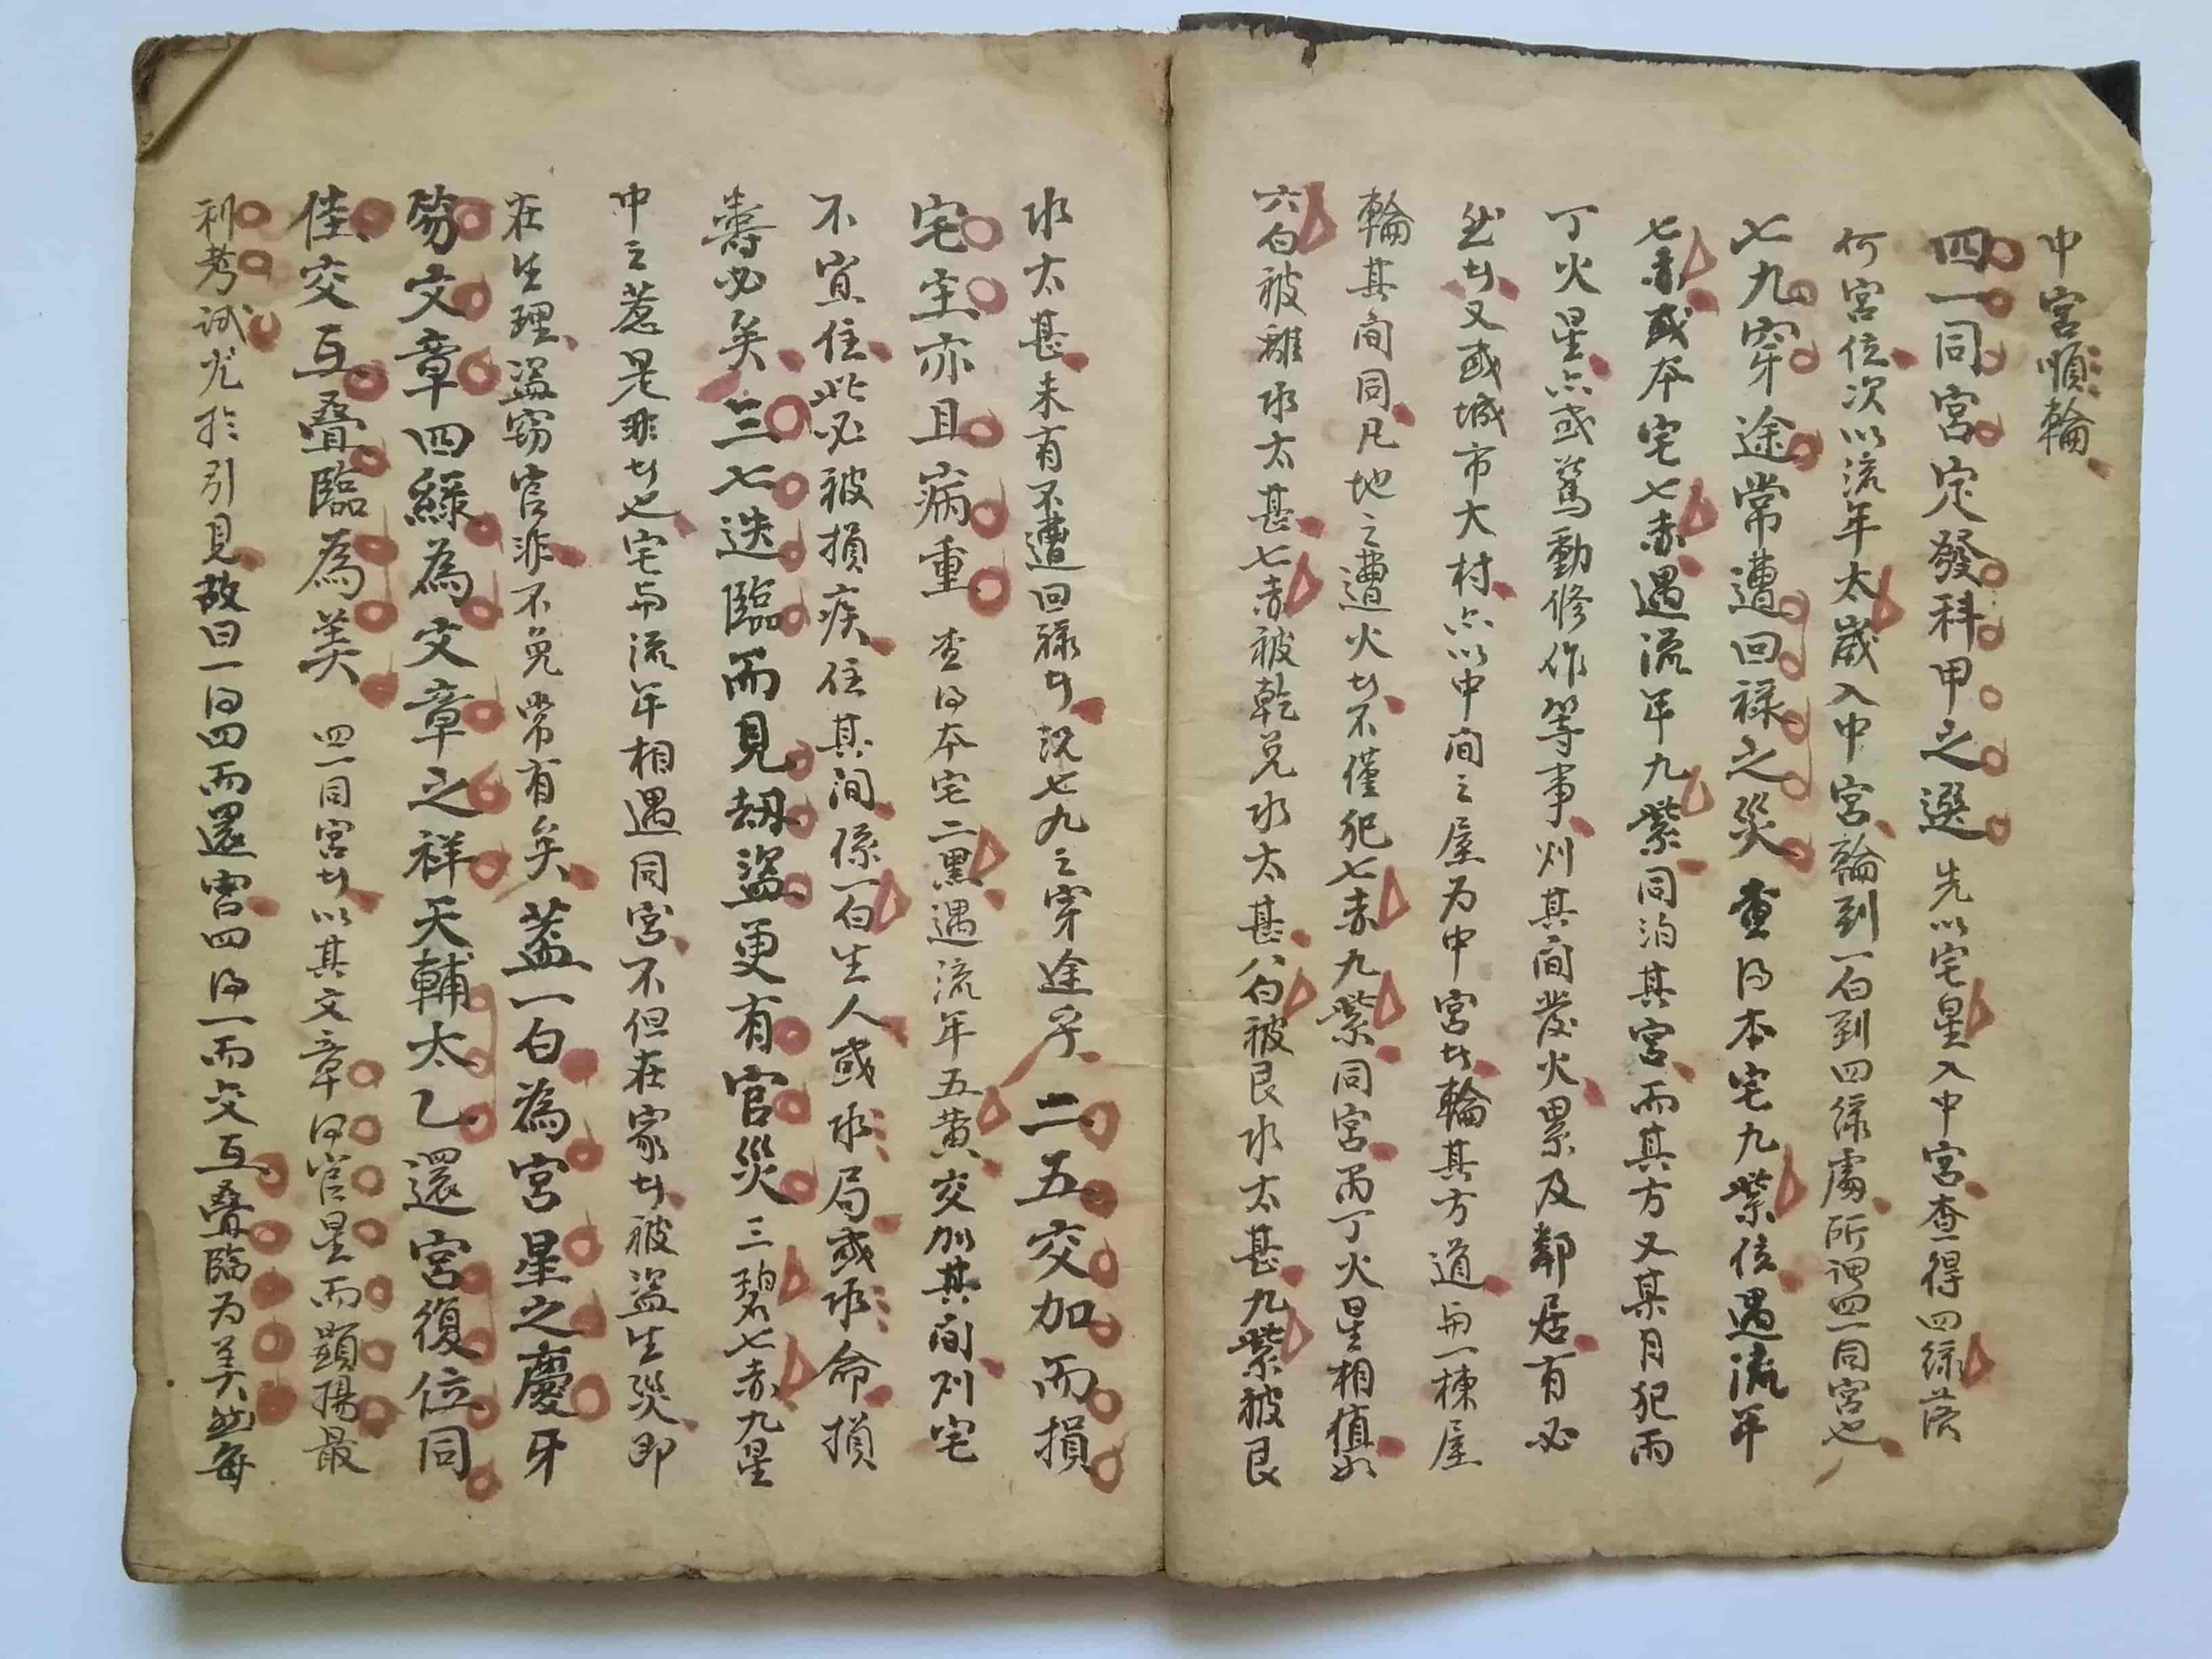 中宮順輪
四一同宮定發科甲之選先以宅星入中宮查得四綠落
何宮位次以流年太歲入中宮輪到一白到四綠處所謂四一同宮也
七九穿途常遭回祿之災查得本宅九紫位遇流年
七赤或本宅七赤遇流年九紫同泊其宮而其方又某月犯丙
丁火星亦或驚動修作等事则其间發火累及鄰居有必
然者又或城市大村亦以中间之屋为中宮者輪其方道与一棟屋
輪其间同凡地之遭火者不僅犯七赤九紫同宮丙丁火星相值如
六白被離水太甚七赤被乾兑水太甚八白被艮水太甚九紫被艮
水太甚未有不遭回祿者況七九之穿途乎二五交加而損
宅主亦且病重查得本宅二黑遇流年五黄交加其间则宅
不宜住此必被損疾住其间係一白生人或水局或水命損
壽必矣三七迭臨而見刼盜更有官災三碧七赤九星
中之惹是非者也宅与流年相遇同宮不但在家者被盜生災即
在生理盜窃官非不免常有矣蓋一白為官星之慶牙
笏文章四綠為文章之祥天輔太乙還宮復位同
佳交互叠臨為美四一同宮者以其文章得官星而顯揚最
利考试尤於引見故曰一得四而還宮四得一而交互叠臨为美然每